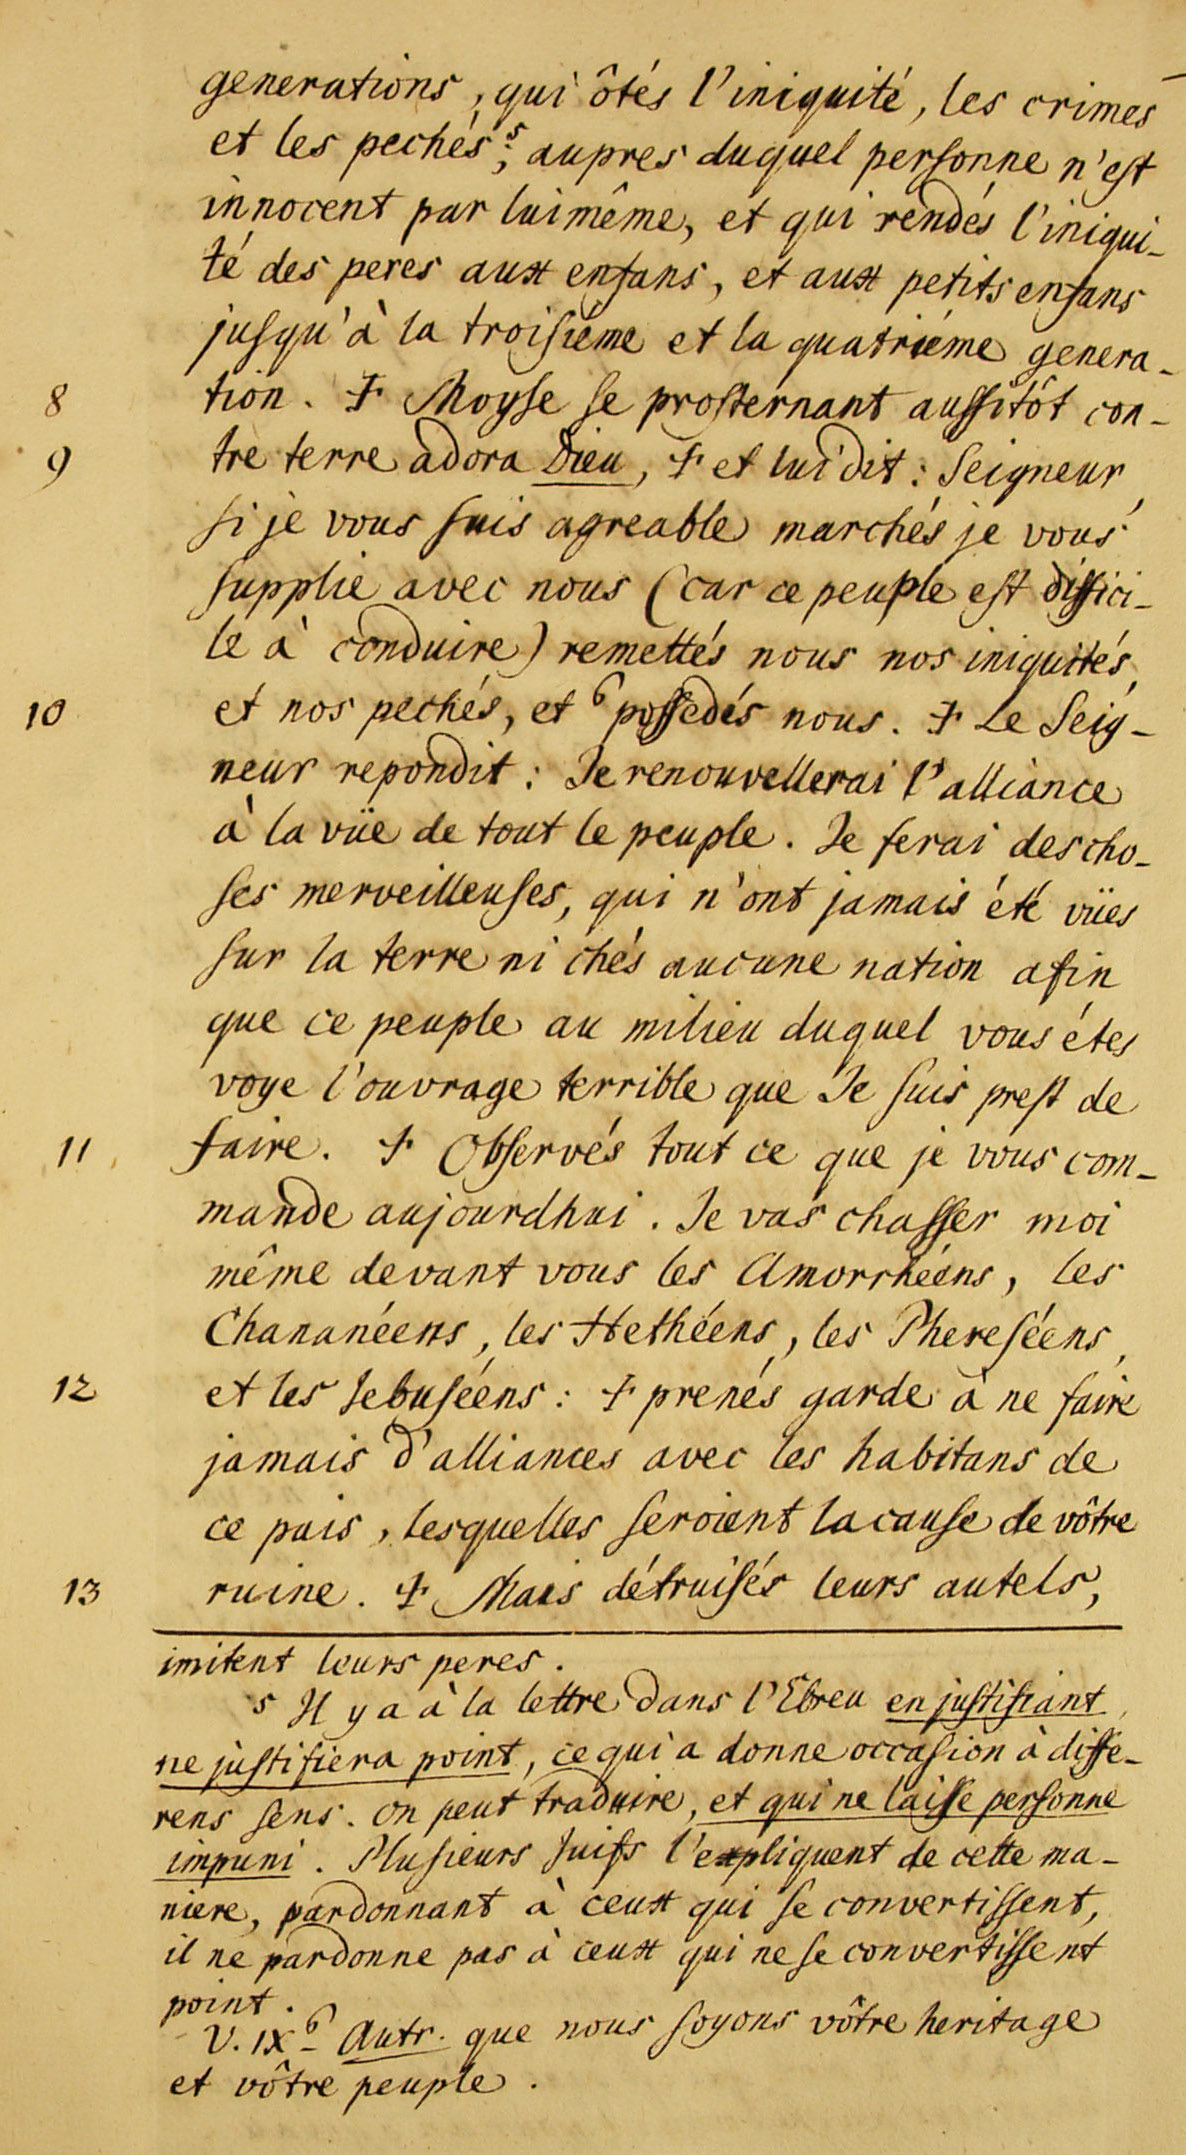 generations, qui ôtés l'iniquité, les crimes
et les pechés 5; aupres duquel personne n'est
innocent par lui même, et qui rendés l'iniqui-
té des peres aux enfans, et aux petits enfans
jusqu'à la troisiéme et la quatriéme genera-
8 tion. ‡ Moyse se prosternant aussitôt con-
9 tre terre adora Dieu, ‡ et lui dit: Seigneur,
si je vous suis agreable marchés je vous
supplie avec nous (car ce peuple est diffici-
le à conduire) remettés nous nos iniquités,
10 et nos pechés, et 6 possedés nous. ‡ Le Seig-
neur repondit: Je renouvellerai l'alliance
à la vüe de tout le peuple. Je ferai des cho-
ses merveilleuses, qui n'ont jamais été vües
sur la terre ni chés aucune nation afin
que ce peuple au milieu duquel vous étes
voye l'ouvrage terrible que Je suis prest de
11 faire. ‡ Observés tout ce que je vous com-
mande aujourdhui. Je vas chasser moi
même devant vous les Amorrhéens, les
Chananéens, les Hethéens, les Phereséens,
12 et les Jebuséens: ‡ prenés garde à ne faire
jamais d'alliances avec les habitans de
ce pais, lesquelles seroient la cause de vôtre
13 ruine. ‡ Mais détruisés leurs autels,
imitent leurs peres.
5 Il y a à la lettre dans l'Ebreu en justifiant,
ne justifiera point, ce qui a donne occasion à diffe-
rens sens. on peut traduire, et qui ne laisse personne
impuni. Plusieurs Juifs l'expliquent de cette ma-
niere, pardonnant à ceux qui se convertissent,
il ne pardonne pas à ceux qui ne se convertissent
point.
V. IX 6 - Autr. que nous soyons vôtre heritage
et vôtre peuple.